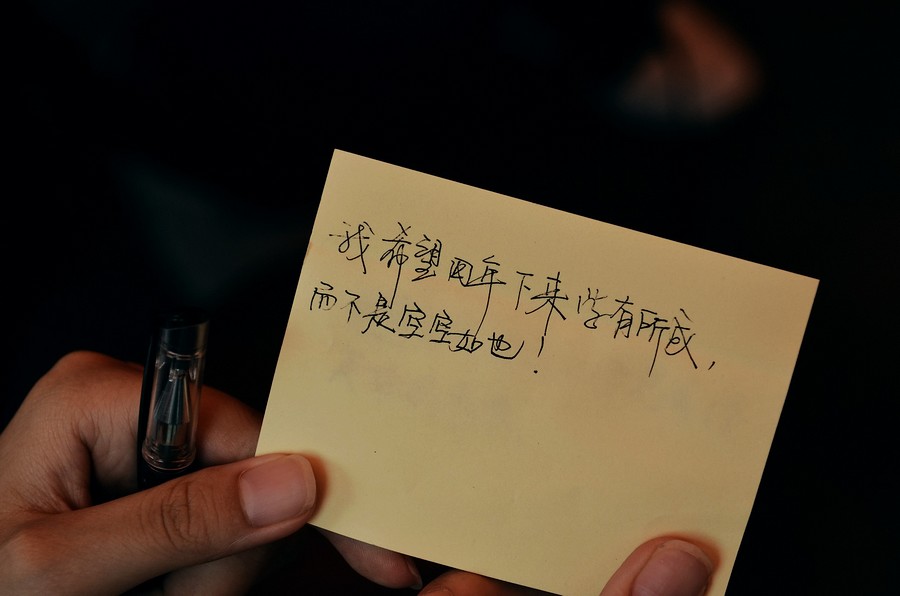 我希望四年下来学有所成，
而不是空空如也！